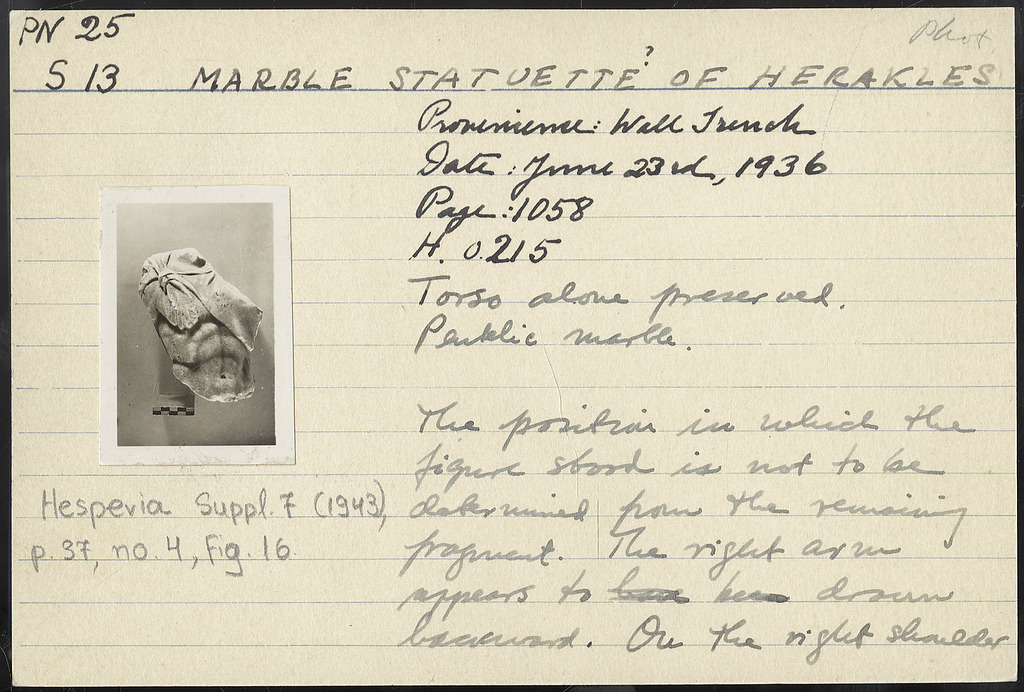 PN 25
Phot.
S 13 MARBLE STATUETTE ? OF HERAKLES
Provenience: Wall Trench
Date: June 23rd, 1936
Page: 1058
H. 0.215
Torso alone preserved.
Pentelic marble.
The position in which the
figure stood is not to be
determined from the remaining
fragment. The right arm
appears to be drawn
backward. On the right shoulder
Hesperia Suppl. 7 (1943),
p. 37, no. 4, Fig. 16.